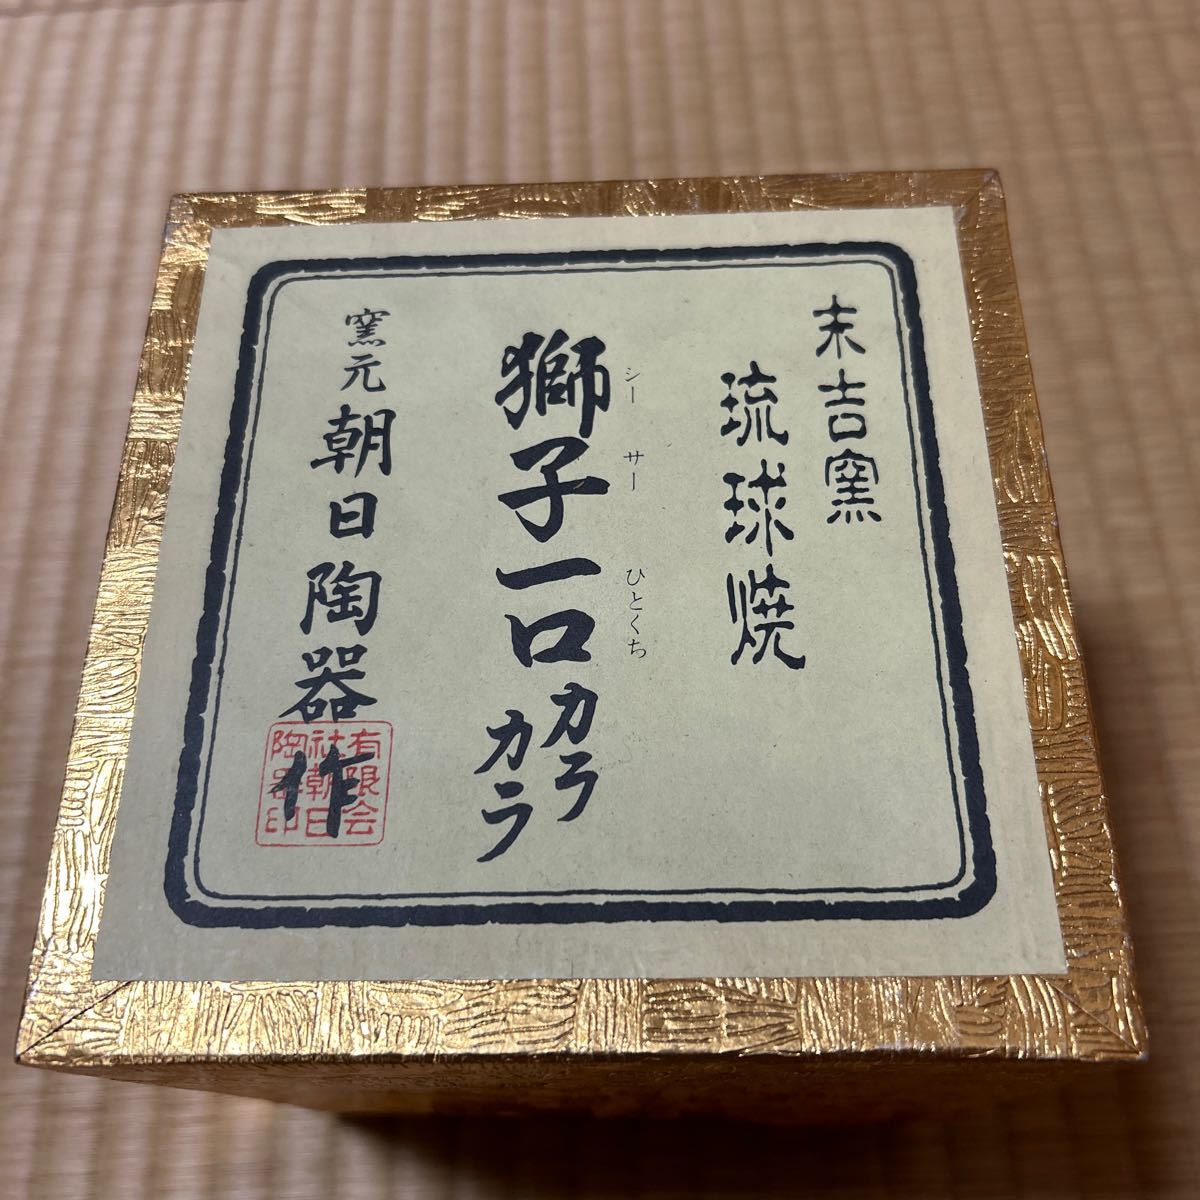 末吉窯
琉球焼
獅子一口カラカラ
シーサー ひとくち
窯元 朝日陶器作
有限会
社朝日
陶器印